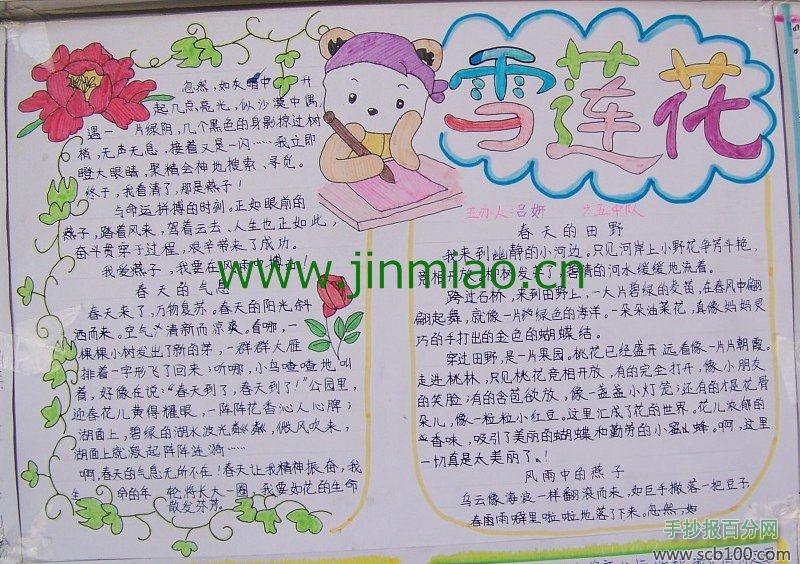 雪莲花
主办人:吕妍 六五中队
忽然,如灰暗中 升
起几点亮光,似沙漠中偶
遇一片绿阴,几个黑色的身影掠过树
梢,无声无息,接着又是一闪……我立即
瞪大眼睛,聚精会神地搜索、寻觅。
终于,我看清了,那是燕子!
与命运拼搏的时刻。正如眼前的
燕子,踏着风来,驾着云去。人生也正如此,
奋斗贯穿于过程,艰辛带来了成功。
我爱燕子,我要在风雨中搏击!
春天的气息
春天来了,万物复苏。春天的阳光斜
洒而来。空气清新而凉爽。看哪,一
棵棵小树发出了新的芽,一群群大雁
排着一字形飞了回来;听哪,小鸟喳喳地叫
着,好像在说:“春天到了,春天到了!”公园里,
迎春花儿黄得耀眼,一阵阵花香沁人心脾;
湖面上,碧绿的湖水波光粼粼,微风吹来,
湖面上就漾起阵阵涟漪……
啊,春天的气息无所不在!春天让我精神振奋,我
生命的年轮将长大一圈,我要如花的生命
散发芬芳。
春天的田野
我来到幽静的小河边。只见河岸上小野花争芳斗艳,
竞相开放。柳树发来了,碧清的河水缓缓地流着。
跨过石桥,来到田野上,一大片碧绿的麦苗,在春风中翩
翩起舞,就像一片绿色的海洋。一朵朵油菜花,真像妈妈灵
巧的手打出的金色的蝴蝶结。
穿过田野,是一片果园。桃花已经盛开,远看像一片片朝霞。
走进桃林,只见桃花竞相开放,有的完全打开,像小朋友
的笑脸;有的含苞欲放,像一盏盏小灯笼;还有的才是花骨
朵儿,像一粒粒小红豆。这里汇成了花的世界。花儿浓郁的
香味,吸引了美丽的蝴蝶和勤劳的小蜜蜂。啊,这里
一切真是太美丽了。
风雨中的燕子
乌云像海浪一样翻滚而来,如巨手撒落一把豆子,
春雨噼哩啪啦地落了下来。忽然,如
www.jinmiao.cn
手抄报百分网
www.scb100.com